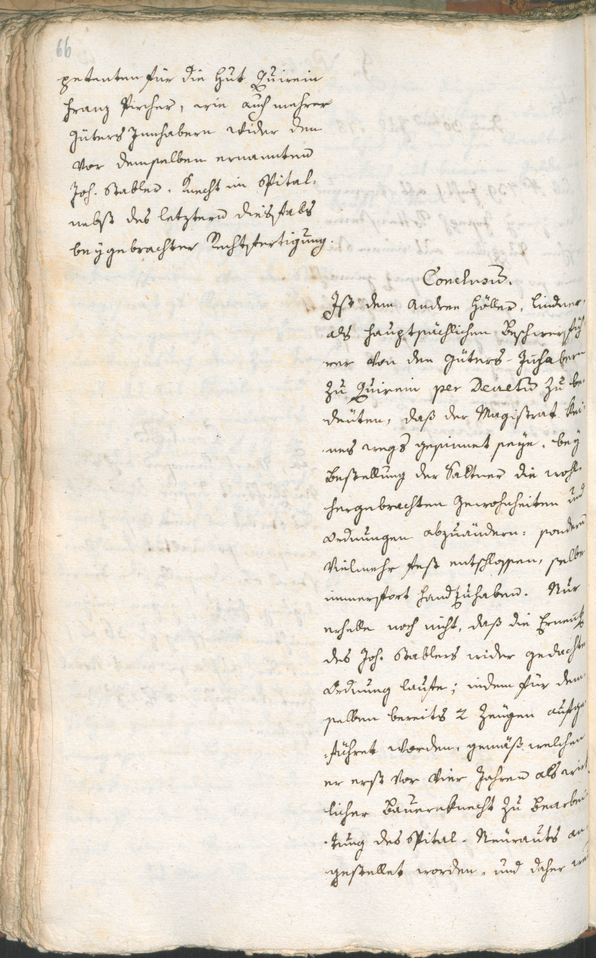 66
petenten für die Hut Quirein
Franz Pircher, wie auch mehrer
Güters Innhabern wider den
vor demselben ernannten
Joh. Stabler, Knecht im Spital,
nebst des letztern diesfals
beygebrachter Rechtfertigung.
Conclusum.
Ist dem Andree Höller, Lindner
als hauptsächlichen Beschwerfüh
rer von den Güters-Inhabern
zu Quirein per Decretum zu be
deuten, daß der Magistrat kei
nes wegs gesinnet seye, bey
Bestellung der Saltner die wohl
hergebrachten Gewohnheiten und
Ordnungen abzuändern: sondern
vielmehr fest entschlossen, selbe
immerfort handzuhaben. Nur
erhelle noch nicht, daß die
des Joh. Stablers wider gedachte
Ordnung laufe; indem für dem
selben bereits 2 Zeugen aufge
führet worden, gemäß welchen
er erst vor vier Jahren als
licher Bauernknecht zu Bearbei
tung des Spital-Neurauts an
gestellet worden, und daher